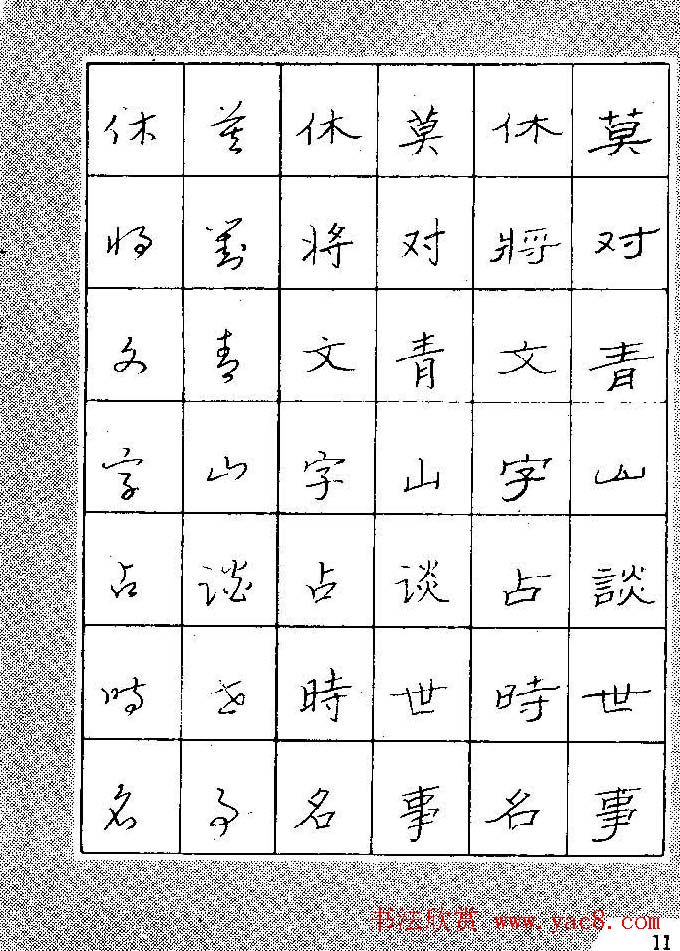 莫对青山談世事
休將文字占時名
莫对青山谈世事
休将文字占時名
莫對青山談世事
休将文字占時名
书法欣赏 www.yac8.com
11